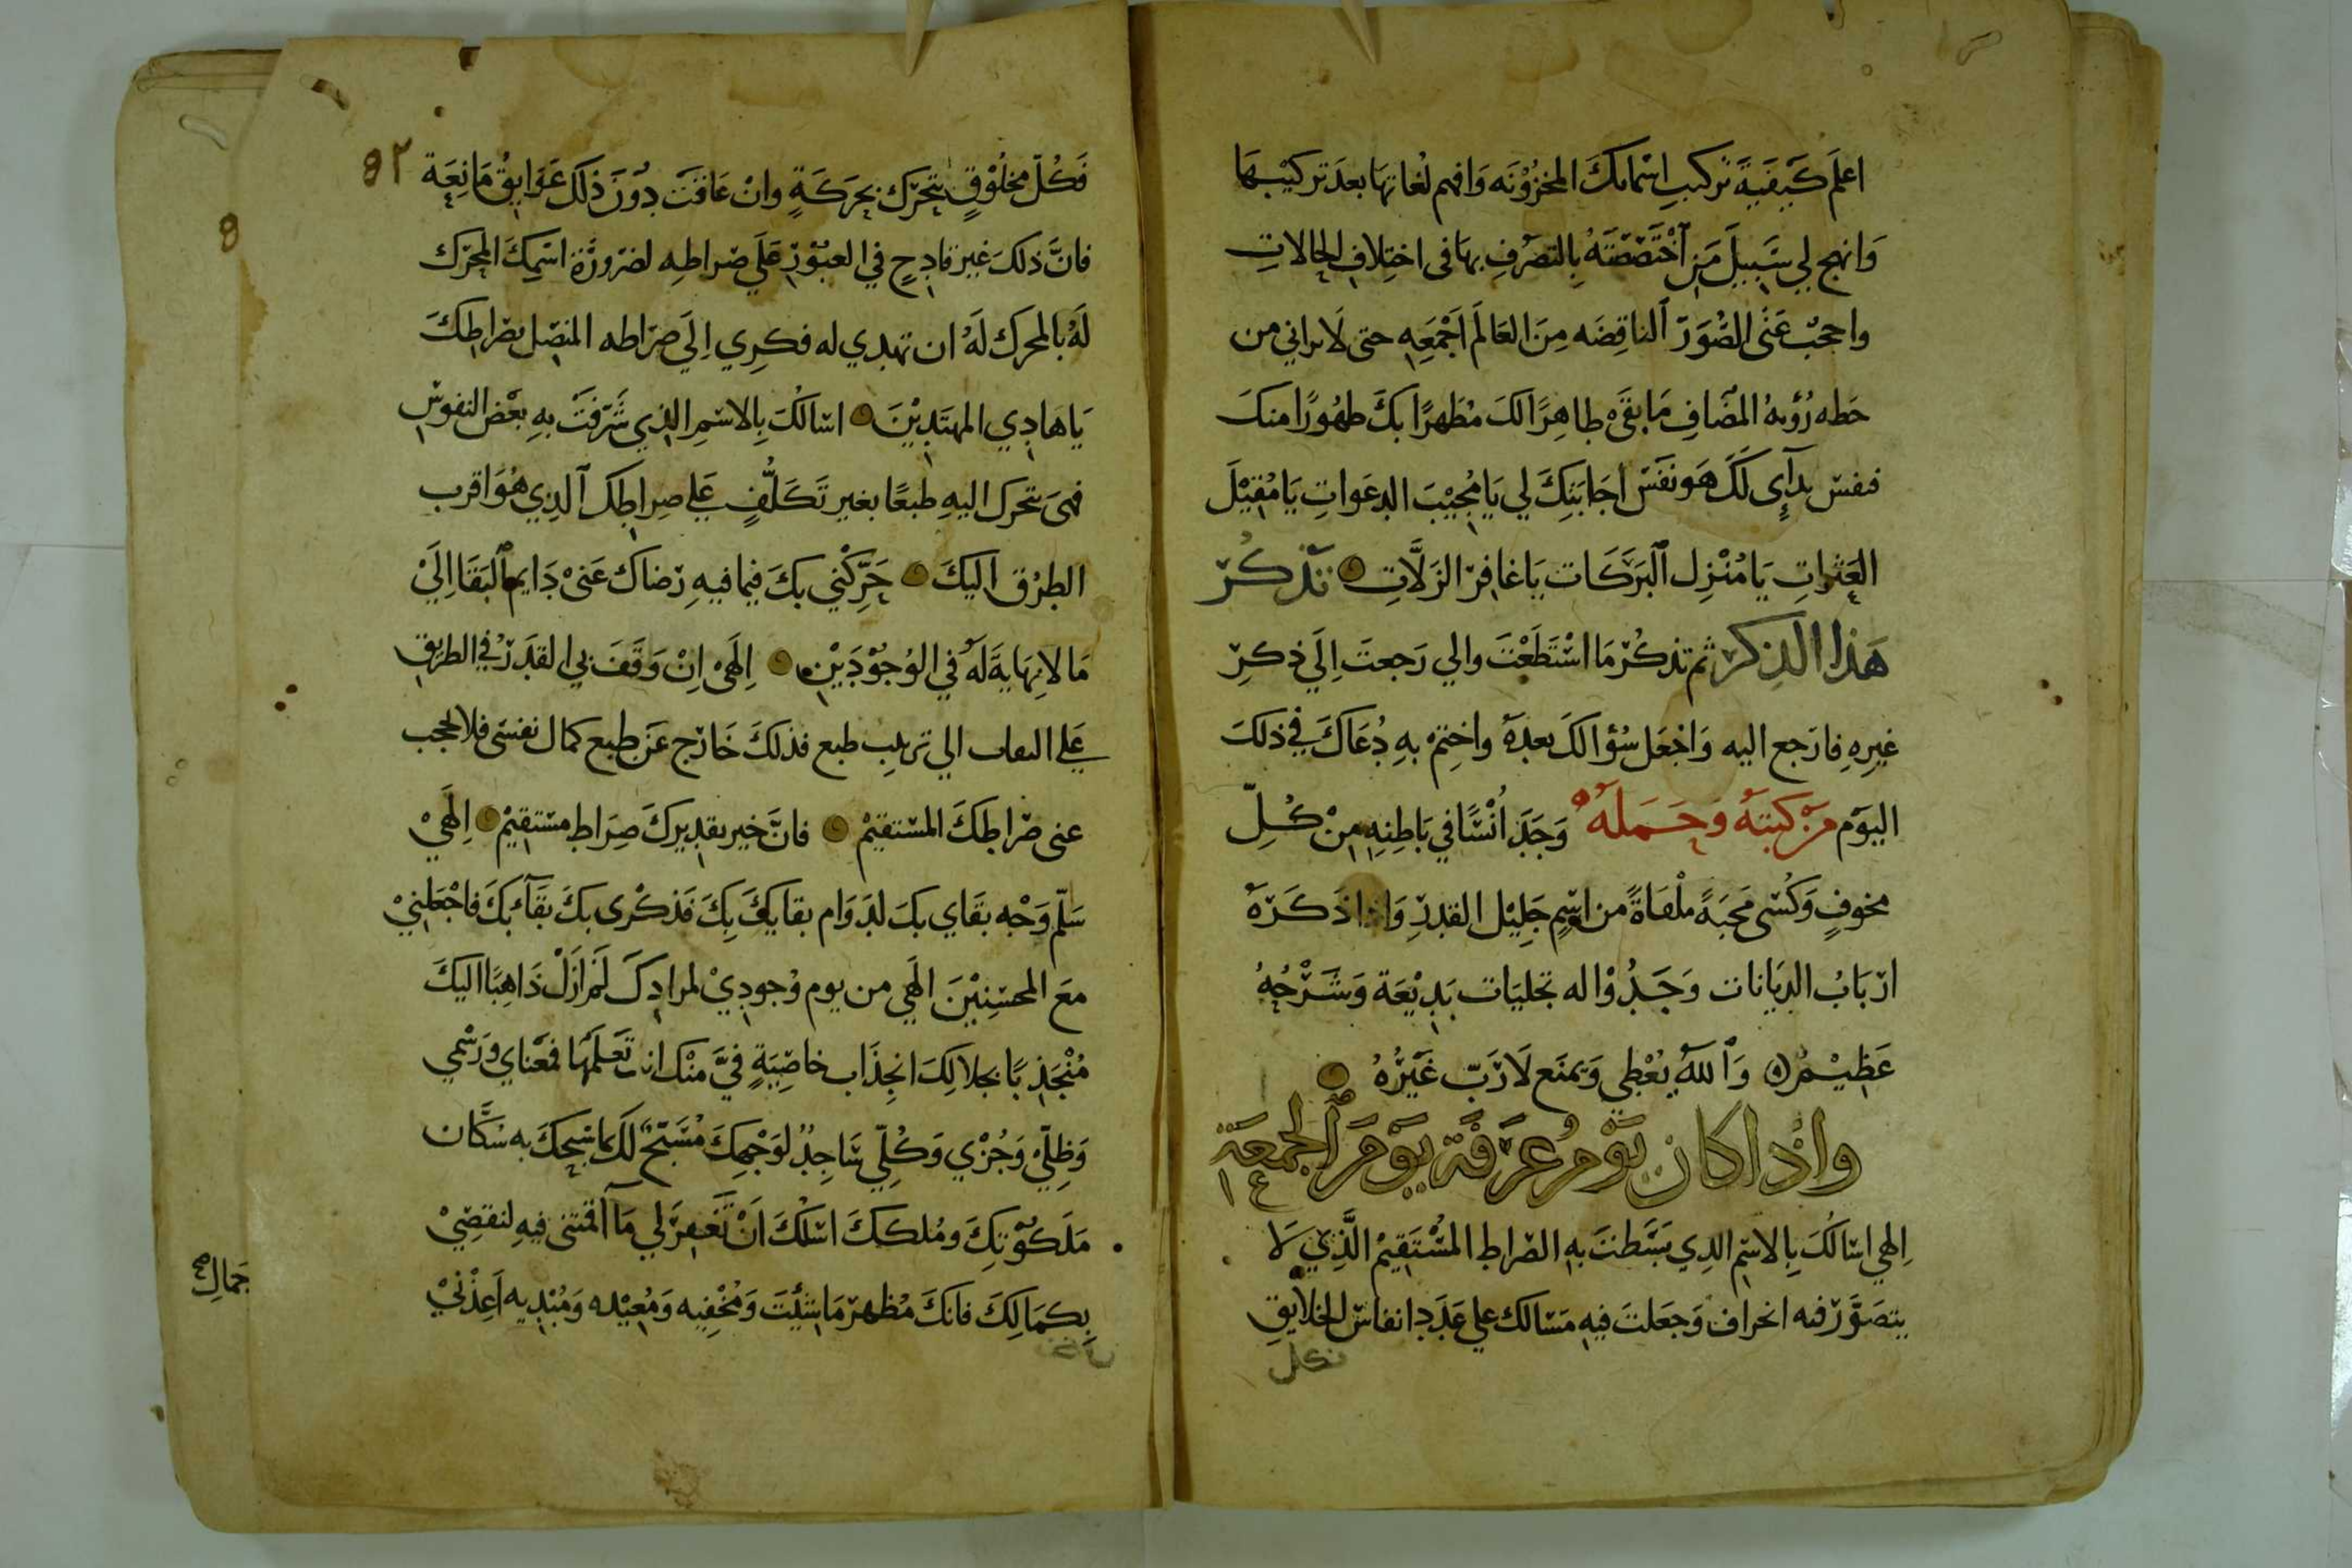 اعلَم كَيفَيةَ تركيبِ اسْمائكَ المخزُوْنَه وَافهم لُغاتهَا بعدَ تركيبهَا
وَانهج لي سَبيلَ مَنِ اخْتَصَصْتَهُ بِالتصرفِ بهَا فى اختِلافِ الحالاتِ
واحجبْ عَنى الصُوَرَ الناقِضَه مِنَ العَالَم اَجْمَعِهِ حتى لَا يرانى من
حَطه رُؤيهُ المضَافِ مَا بقَىْ طاهِرًا لكَ مُطَهرًا بكَ طهُورًا منكَ
فنفس ندآىٕ لَكَ هَو نفَسْ اِجَابَتِكَ لي يَا مُجيْبَ الدعَواتِ يَا مُقِيْلَ
العَثَراتِ يَا مُنْزِل البَرَكَات يَا غافِرَ الزَلَّاتِ تذكُرْ
هَذا الذِكرَ ثم تذكُرْ مَا اسْتَطَعْتَ والي رَجعتَ اِلَي ذِكرِ
غيرِهِ فارَجع اليه وَاجْعَل سُؤالكَ بعدَهُ واخْتِمْ بهِ دُعَاكَ في ذلكَ
اليوَم مَنْ كتبَهُ وَحَمَلَهُ وَجَدَ اُنْسًا في بَاطِنِهِ مِنْ كُلِّ
مخوفٍ وَكُسى مَحبَةً مُلْقَاةً من اسْمٍ جَلِيْلِ القدرِ وَاِذا ذَكَرَهُ
ارْبَابُ الدِيَانات وَجَدُوْا له تجَليَات بَدِيْعَة وَشَرْحُهُ
عَظِيْمٌ وَاللهُ يُعْطِى وَيمنَع لَا رَبّ غَيْرُهُ
وَاِذا كانَ يَوْمُ عَرَفَة يَوْمَ الجمْعَة
اِلهي اسْالُكَ بِالاسْمِ الذِي بَسَطتَ بهِ الصراط المُسْتَقِيْمَ الَّذِي لَا
يتصَوَّر فيه انحراف وَجَعَلتَ فيهِ مَسَالك على عَدَدِ انفاسْ الخلايِق
فكل
٨٢
فَكُلّ مخلُوْقٍ يتحَرّك بحَرَكَةٍ وانْ عَاقَتْ دُوْنَ ذَلك عَوَايِقُ مَانِعَة
فانَّ ذلكَ غير قادِحٍ في العبُوْرِ عَلَي صَراطِهِ لضرورَةِ اسْمِكَ المحرّك
لَهُ بالمحرك لَهُ ان تهدي له فكرِي اِلَي صَراطه المتصِل بصَراطِكَ
يَا هَادِي المهتَدِيْنَ اسْالكَ بِالاسْمِ الذِي شَرَفتْ بهِ بعْضُ النفوس
فهى تتحرك اليهِ طبعًا بغير تَكَلُّفٍ عَلي صِراطِكَ الذِي هُوَ اقرب
الطرُق اليكَ حَرِّكْنِي بكَ فيما فيهِ رَضاك عَنىْ دَايم البَقَا اِلَيْ
مَا لا نِهَايةَ لَهُ في الوُجُوْدَيْنِ اِلَهىْ اِنْ وَقَفَ بي القدَرُ في الطريقِ
عَلي الي طبع فذلكَ خَارج عَن طبع كمال نفسَى فلا تحجب
عنى صَراطكَ المسْتقيمْ فانَّ خير تقديركَ صِرَاط مسْتقِيْم اِلَهيْ
سَلّم وَجْه بقَاي بكَ لدَوَام بقايكَ بِكَ فَذكْرى بكَ بقَآئ بكَ فاجْعَلنِيْ
معَ المحسْنِيْنَ الَهَي من يوم وُجودِيْ لمرادِكَ لَمْ اَزَلْ ذَاهِبًا اليكَ
مُنْجَذِبًا بجلالكَ انجِذَاب خاصِيَةٍ فيَّ منْك انتَ تَعلَمُهَا فمَعْناي وَرَسْمي
وَظِلّيْ وَجُزْيْ وَكُلّي سَاجِدٌ لوَجْهِكَ مُسَبّحٌ لَك بما سَبحكَ به سُكَّان
مَلَكُوْتِكَ ومُلككَ اسْلكَ اَنْ تَغفِرَ لي مَا اقمْتَنى فيهِ لنقصِيْ
بِكَمَالِكَ فانكَ مُظهر مَا شئْيتَ وَمُخْفِيه وَمُعِيْده وَمُبْدِيه اَعِذْنيْ
جَمال